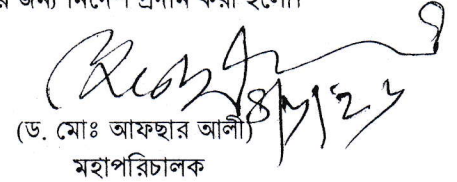 র জন্য নির্দেশ প্রদান করা হলো।
(ড. মোঃ আফছার আলী)
মহাপরিচালক